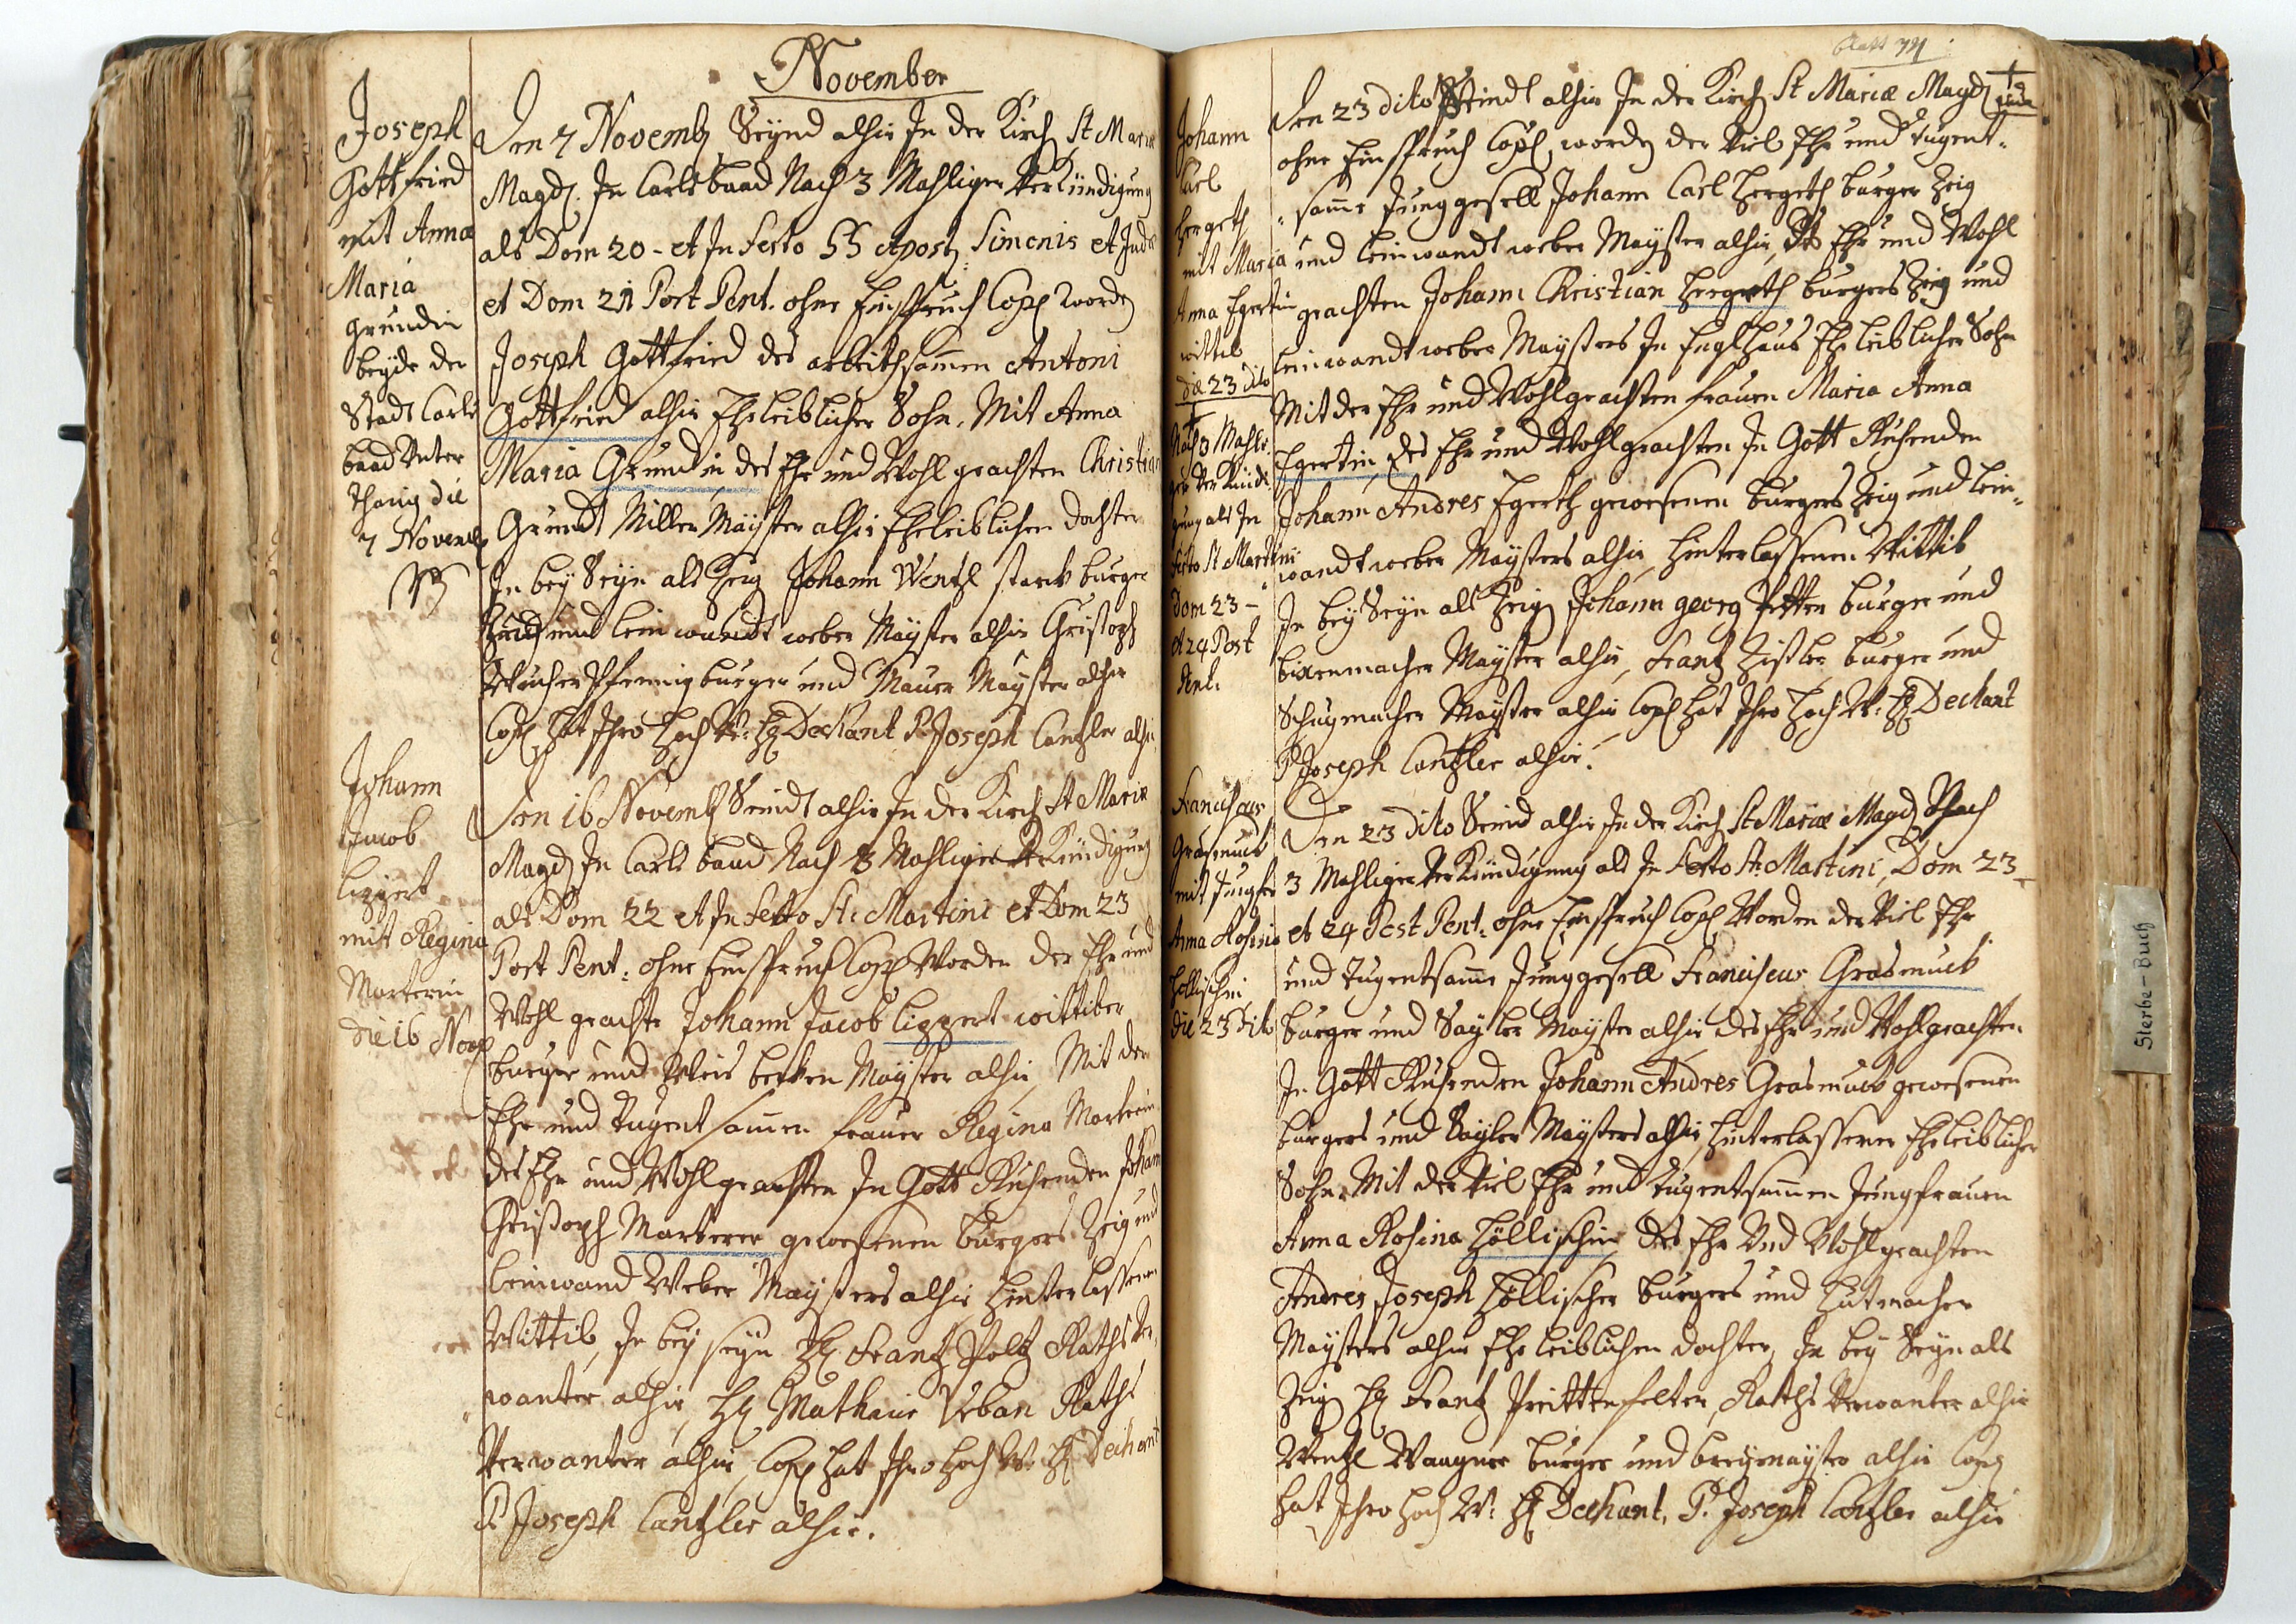 November
Joseph
Gottfried
mit Anna
Maria
Grundin
beyde der
Stadt Carls
baad Unter
thanig die
7 Novemb
Den 7 Novemb Seynd alhir In der Kirch St Mariæ
Magd. In Carlsbaad Nach 3 Mahliger Verkündigung
als Dom 20 - et In Festo SS Apost Simonis et Judæ
et Dom 21 Post Pent. ohne Einspruch Copl worden
Joseph Gottfried des arbeithsamen Antoni
Gottfried alhir Eheleiblicher Sohn, Mit Anna
Maria Grundin des Ehr und Wohl geachten Christian
Grundt Miller Mayster alhir Eheleiblichen dochter
In bey Seyn als Zeig Johann Wentzl starck burger
Zeig und leinwandt weber Mayster alhir Christoph
Wucherpfennig burger und Maurer Mayster alhir
Copl hat Ihro Hoch W: H Dechant P Joseph Cantzler alhir
Johann
Jacob
Lippert
mit Regina
Marterin
die 16 Nov
Den 16 Novemb Seindt alhir In der Kirch St Mariæ
Magd In Carls baad Nach 3 Mahliger Verkündigung
als Dom 22 et In Festo St: Martini et Dom 23
Post Pent: ohne Einspruch Copl Worden der Ehr und
Wohl geachte Johann Jacob Lippert wittiber
burger und Weis becken Mayster alhir, Mit der
Ehr und Tugent samen frauen Regina Marterin
des Ehr und Wohlgeachten In Gott Ruhenden Johann
Christoph Marterer gewesenen burgers Zeig und
leinwand Weber Maysters alhir hinterlassenen
Wittib, In bey seyn H Frantz Poltz Raths Ver
wanter alhir, H Mathaus Urban Raths
Verwanter alhir, Copl hat Ihro Hoch W: H Dechant
P Joseph Cantzler alhir.
blatt 74
Johann
Carl
Hergeth
mit Maria
Anna Egertin
wittib
die 23 dito
Nach 3 Mahli
ger Verkündi
gung als In
Festo St Martini
Dom 23 -
et 24 Post
Pent.
Den 23 dito Seindt alhir In der Kirch St Mariæ Magd
ohne Einspruch Copl worden der Viel Ehr und tugent-
same Junggesell Johann Carl Hergeth burger Zeig
und leinwandt weber Mayster alhir, Des Ehr und Wohl
geachten Johann Christian Hergeth burgers Zeig und
leinwandt weber Maysters In Englhaus Eheleiblicher Sohn
Mit der Ehr und Wohlgeachten frauen Maria Anna
Egertin Des Ehr und Wohlgeachten In Gott Ruhenden
Johann Andres Egerth gewesenen burgers Zeig und lein-
wandt weber Maysters alhir, hinterlassenen Wittib
In bey Seyn als Zeig Johann georg burger und
bixenmacher Mayster alhir, Frantz burger und
Schuymacher Mayster alhir Copl hat Ihro Hoch W: H Dechant
P Joseph Cantzler alhir.
Franciscus
Grasmuck
mit Jungfr
Anna Rosina
Höllischin
die 23 dito
Den 23 dito Seind alhir In der Kirch St Mariæ Magd Nach
3 Mahliger Verkündigung als In Festo St: Martini, Dom 23
et 24 Post Pent. ohne Einspruch Copl Worden der Viel Ehr
und tugentsame Junggesell Franciscus Grasmuck
burger und Sayler Mayster alhir des Ehr und Wohlgeachten
In Gott Ruhenden Johann Andres Grasmuck gewesenen
burgers und Sayler Maysters alhir, hinterlassener Eheleiblicher
Sohn, Mit der Viel Ehr und tugentsamen Jungfrauen
Anna Rosina Höllischin, Des Ehr Und Wohlgeachten
Andres Joseph Höllischer burgers und Hutmacher
Maysters alhir Eheleiblichen dochter, In bey Seyn als
Zeig H Frantz Raths Verwanter alhir
Wentzl Waagner burger und breymayster alhir Copl
hat Ihro Hoch W: H Dechant, P. Joseph Cantzler alhir
Sterbe-Buch